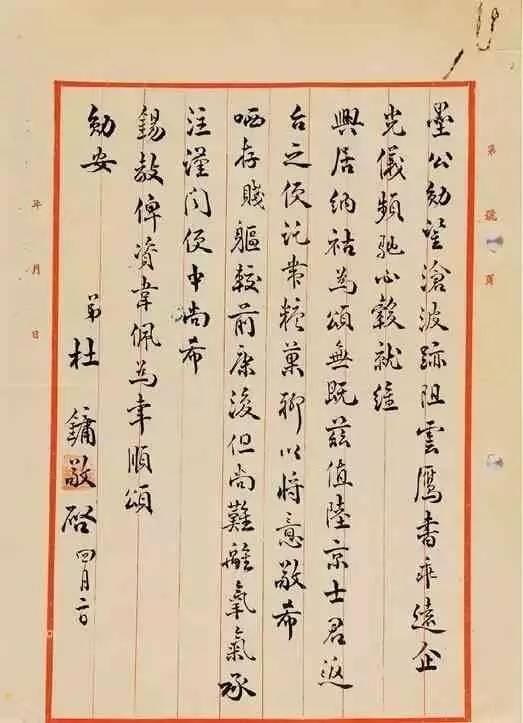 墨公勛望滄波跡阻雲鴈書乖遠企
光儀頻馳心轂就維
興居納祜為頌無既茲值陸京士君返
台之便託帶糖菓聊以將意敬希
哂存賤軀較前康復但尚難離氧氣承
注謹聞便中尚希
錫教俾資韋佩為幸順頌
勛安
弟杜鏞敬啓四月二日
第 號 頁
年 月 日